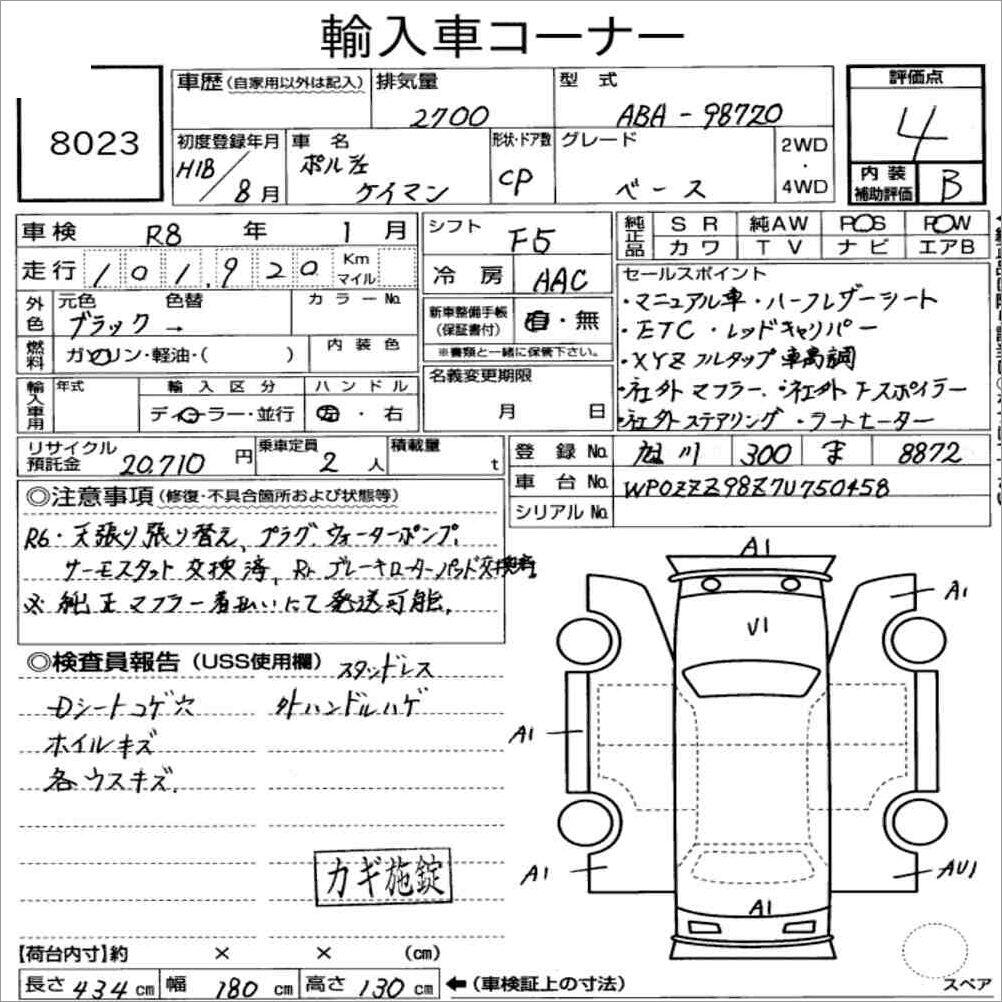 輸入車コーナー
8023
車歴 (自家用以外は記入)
排気量
2700
型式
ABA-98720
評価点
4
初度登録年月
H18/8月
車名
ポルシェ
ケイマン
形状・ドア数
CP
グレード
ベース
2WD
・
4WD
内装
補助評価
B
車検 R8 年 1 月
走行 101,920 Km マイル
シフト
F5
冷房 AAC
純正品
SR 純AW POS POW
カワ TV ナビ エアB
外色
元色 色替
ブラック →
カラーNo.
燃料
ガソリン・軽油・( )
内装色
新車整備手帳
(保証書付)
有・無
※書類と一緒に保管下さい。
セールスポイント
・マニュアル車・ハーフレザーシート
・ETC・レッドキャリパー
・XYZフルタップ車高調
・社外マフラー、・社外 F-スポイラー
・社外ステアリング・シートヒーター
輸入車用
年式
輸入区分
ディーラー・並行
ハンドル
左・右
名義変更期限
月 日
リサイクル
預託金
20,710 円
乗車定員
2 人
積載量
t
登録No. 旭川 300 ま 8872
車台No. WP0ZZZ98Z7U750458
シリアルNo.
◎注意事項 (修復・不具合箇所および状態等)
R6・天張り張り替え、プラグ、ウォーターポンプ、
サーモスタット交換済、Rr ブレーキローターパッド交換済
※純正マフラー着払いにて発送可能。
◎検査員報告 (USS使用欄) スタッドレス
Dシートコゲ穴 外ハンドルハゲ
ホイルキズ
各ウスキズ
カギ施錠
A1
A1
U1
A1
A1
A1
AU1
【荷台内寸】約 × × (cm)
長さ 434 cm 幅 180 cm 高さ 130 cm ←(車検証上の寸法)
スペア